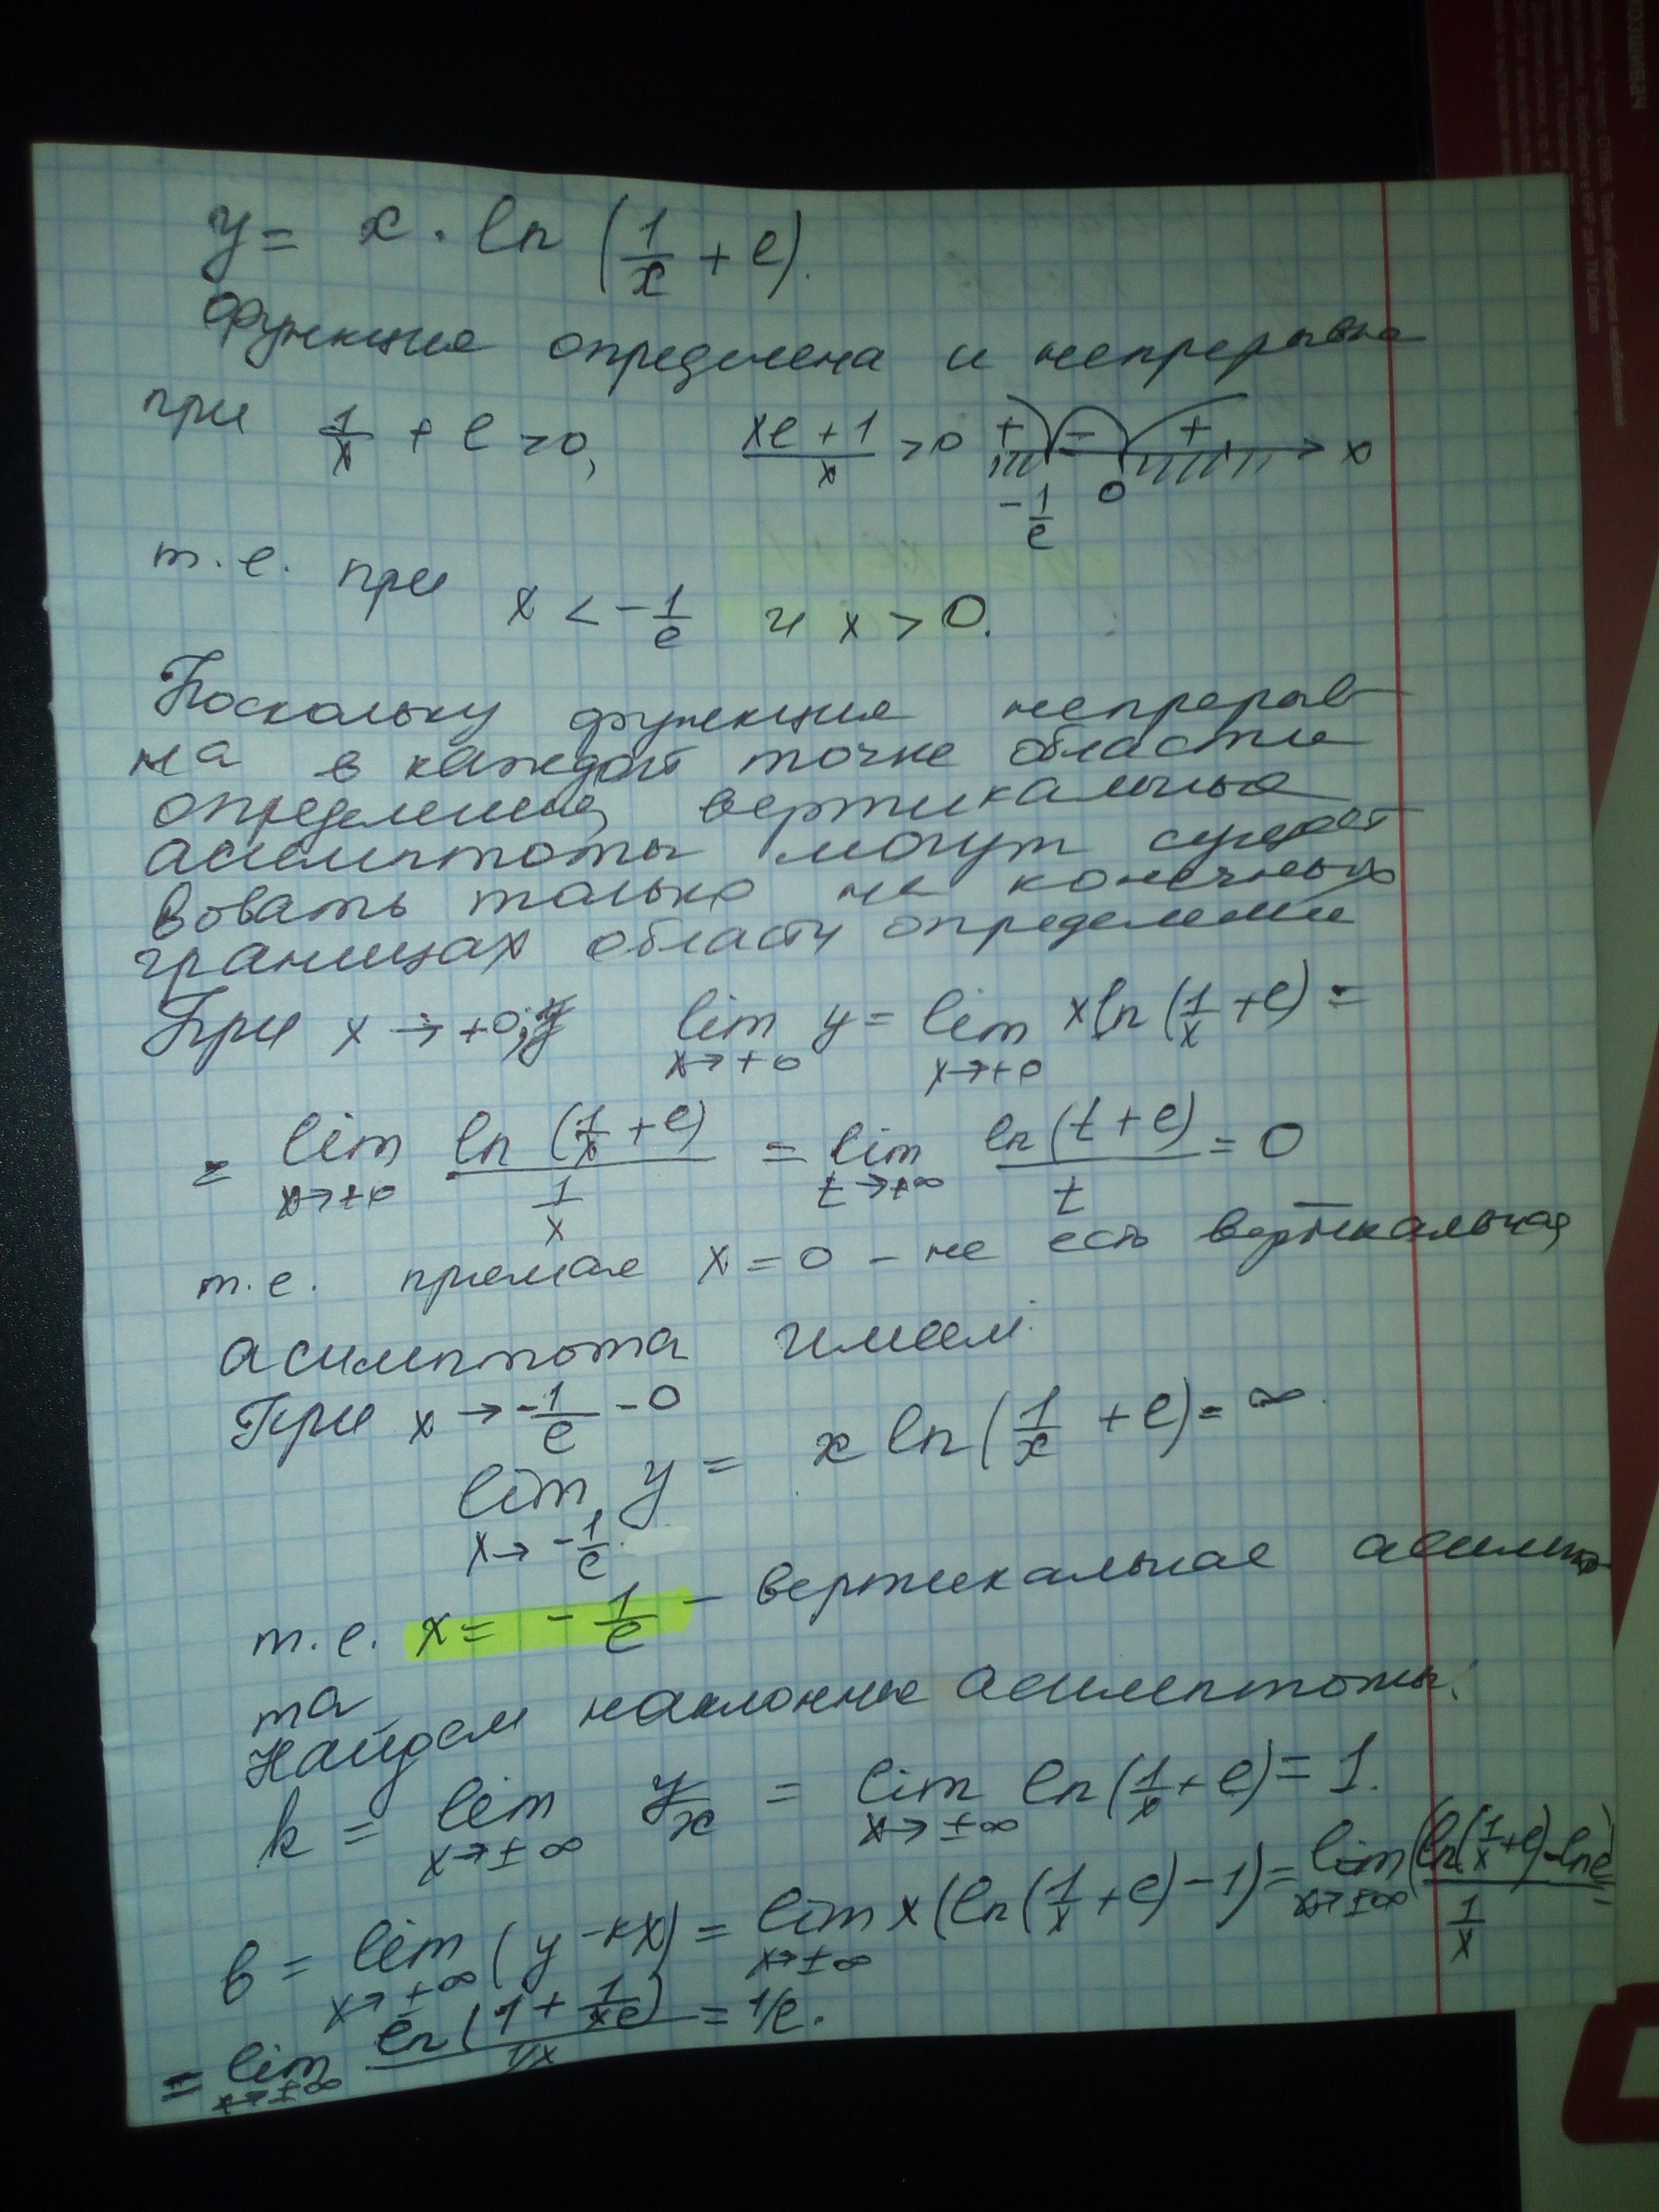 y = x · ln (1/x + e).
Функция определена и непрерывна
при 1/x + e > 0, (xe + 1)/x > 0 + − + x
−1/e 0
т.е. при x < −1/e и x > 0.
Поскольку функция непрерыв
на в каждой точке области
определения, вертикальные
асимптоты могут сущест
вовать только на конечных
границах области определения
При x → +0; y lim x→+0 y = lim x→+0 x ln (1/x + e) =
= lim x→+0 ln (1/x + e) / (1/x) = lim t→+∞ ln (t + e) / t = 0
т.е. прямая x = 0 – не есть вертикальная
асимптота имеем:
При x → −1/e − 0
lim x→ −1/e y = x ln (1/x + e) = ∞.
т.е. x = −1/e – вертикальная асимпто
та
Найдем наклонные асимптоты:
k = lim x→±∞ y/x = lim x→±∞ ln (1/x + e) = 1.
b = lim x→±∞ (y − kx) = lim x→±∞ x (ln (1/x + e) − 1) = lim x→±∞ (ln (1/x + e) − ln e) / (1/x) =
= lim x→±∞ ln (1 + 1/xe) / (1/x) = 1/e.